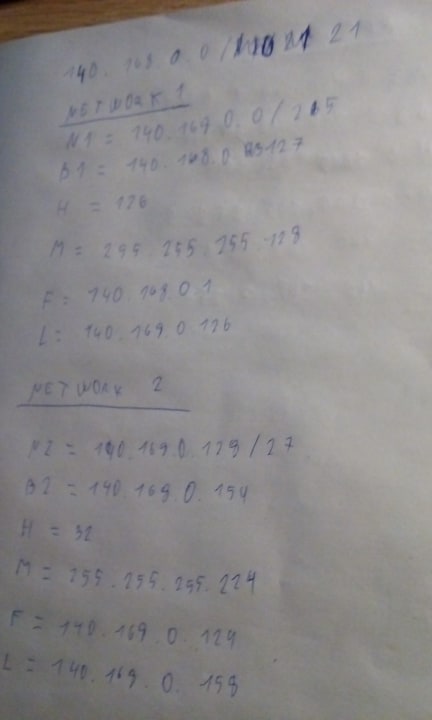 140.168.0.0/ 21
NETWORK 1
N1 = 140.168.0.0/25
B1 = 140.168.0.127
H = 126
M = 255.255.255.128
F = 140.168.0.1
L = 140.168.0.126
NETWORK 2
N2 = 140.168.0.128/27
B2 = 140.168.0.
H = 32
M = 255.255.255.224
F = 140.168.0.129
L = 140.168.0.158